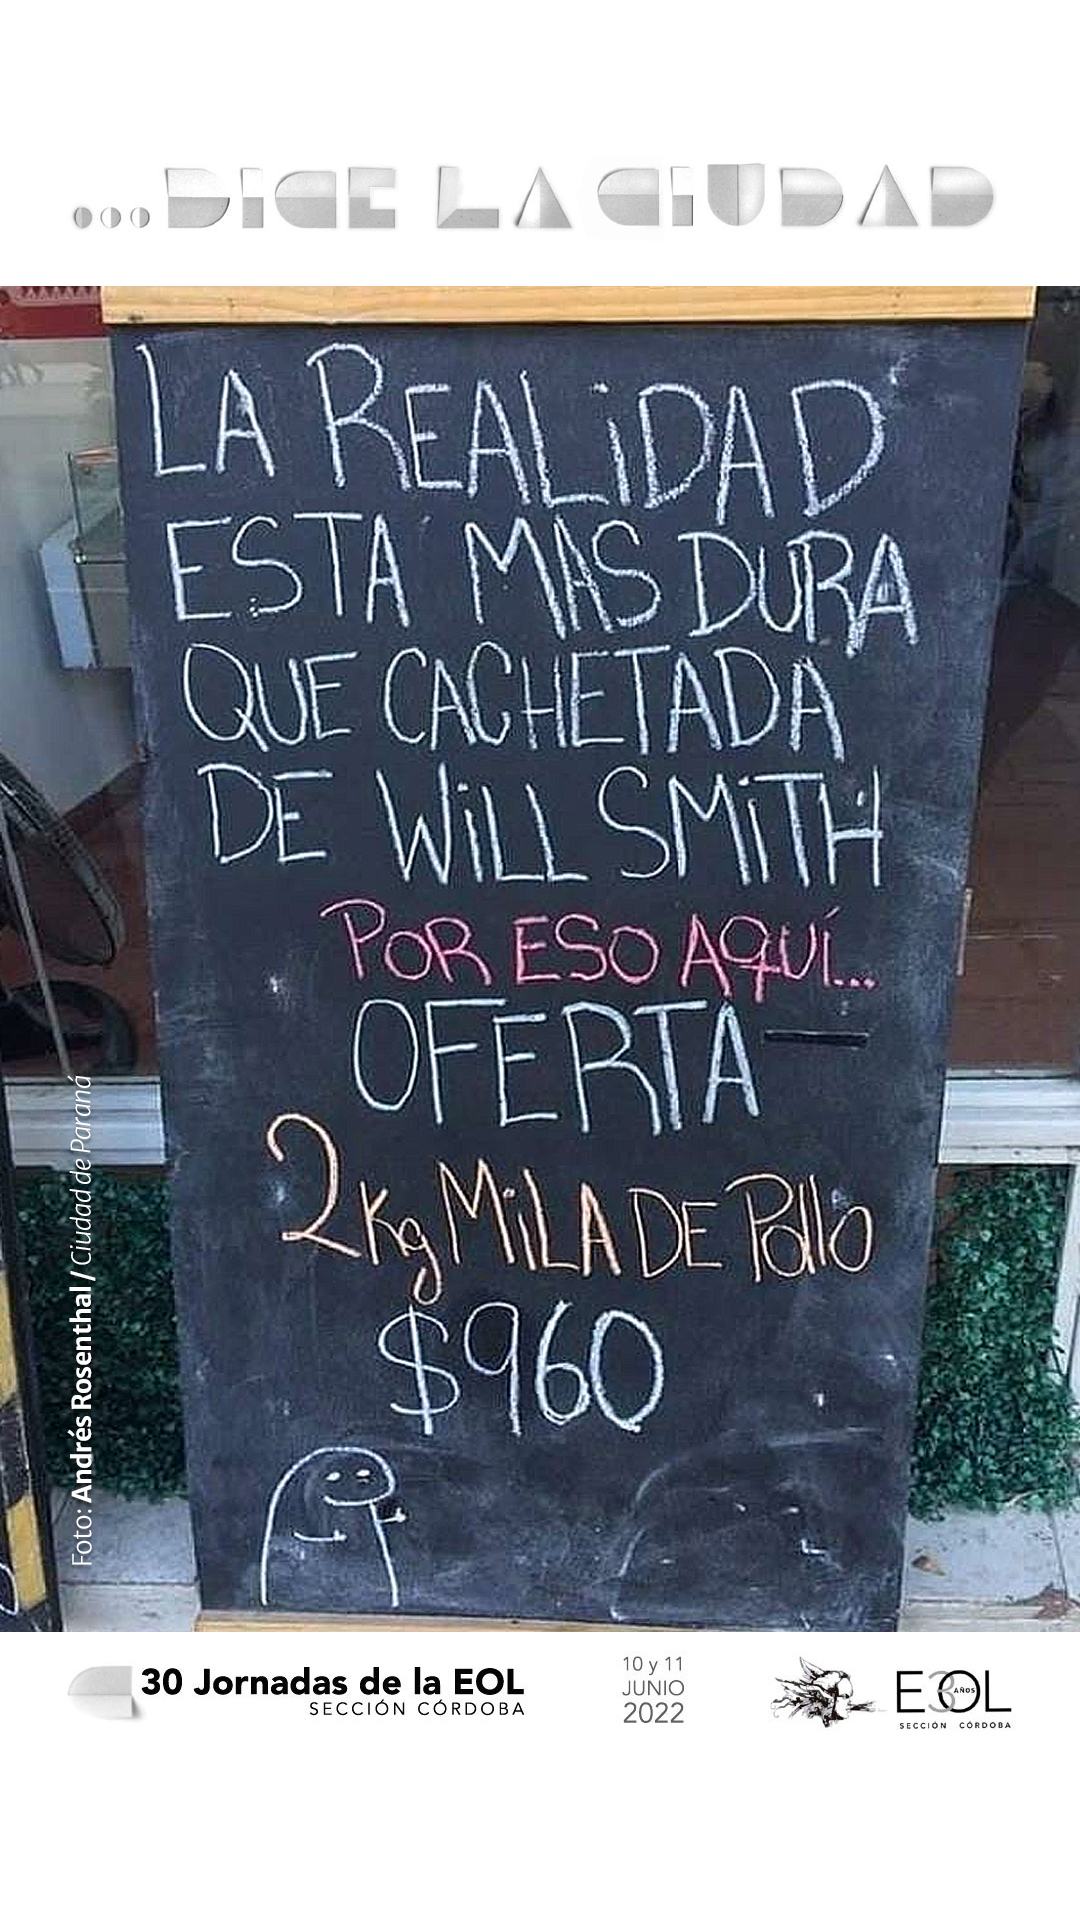 ...DICE LA CIUDAD
LA REALIDAD
ESTA MAS DURA
QUE CACHETADA
DE WiLL SMiTH
POR ESO AQUÍ...
OFERTA
2Kg MiLA DE Pollo
$960
Foto: Andrés Rosenthal / Ciudad de Paraná
30 Jornadas de la EOL
SECCIÓN CÓRDOBA
10 y 11
JUNIO
2022
EOL
30 AÑOS
SECCIÓN CÓRDOBA